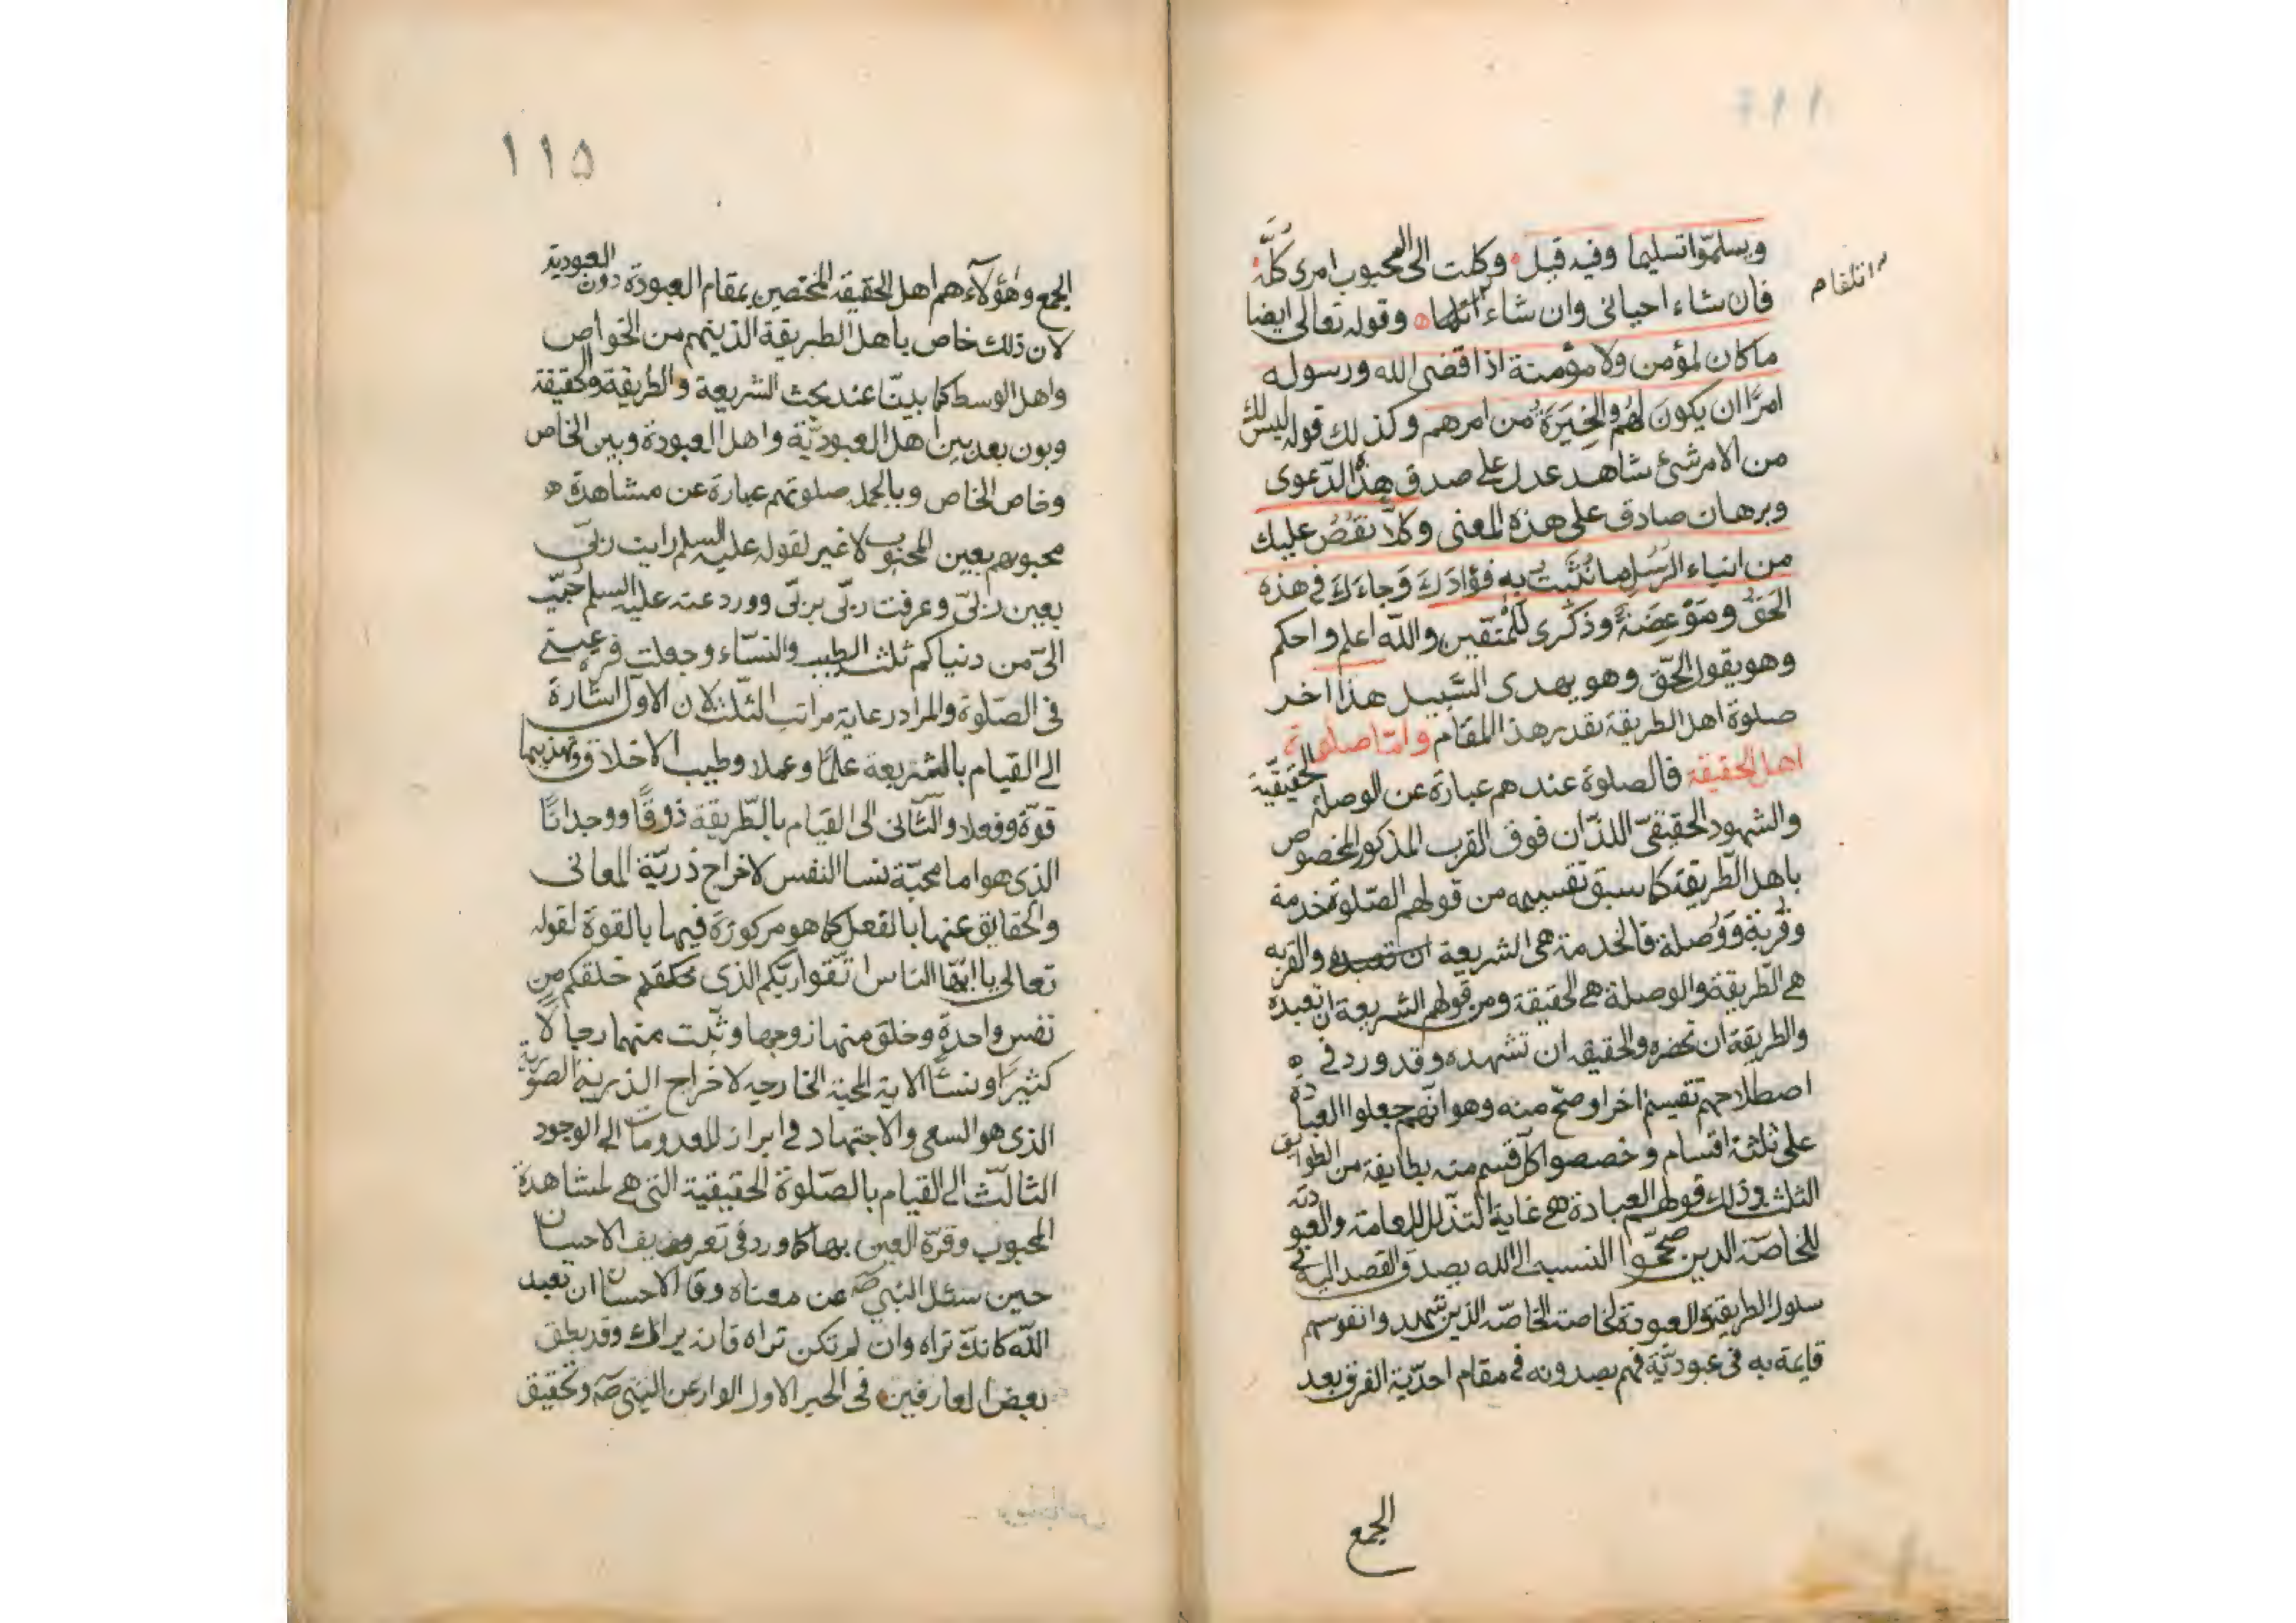 ويسلمّوا تسليما وفيه قيل وكلت الى المحبوب امرى كلّه
فان شاء احيانى وان شاء اتلفا وقوله تعالى ايضا
م اتلفا م
ماكان لمؤمن ولا مؤمنة اذا قضى الله ورسوله
امرًا ان يكون لهُم الخِيَرَةُ من امرهم وكذلك قوله ليس لك
من الامر شئ شاهد عدل على صدق هذه الدّعوى
وبرهان صادق على هذه المعنى وكلّا نقُصُ عليك
من انباء الرّسُل ما نُثَبّت به فؤادَكَ وَجاءَكَ فى هذه
الحَقُّ ومَوْعِضَةً وذكرى للمتّقين والله اعلم واحكم
وهو يقول الحّق وهو يهدى السّبيل هذا اخر
صلوة اهل الطريقة بقدر هذا المقام وامّا صلوة
اهل الحقيقة فالصلوة عندهم عبارة عن الوصلة الحقيقيّة
والشهود الحقيقىّ اللذّان فوق القرب المذكور المخصوص
باهل الطّريقة كما سبق تقسيمه من قولهم الصّلوة خدمة
وقُربة وَوُصلة فالخدمة هى الشريعة ان تعبده والقربه
هى الطّريقة والوصلة هى الحقيقة ومن قولهم الشريعة ان تعبده
والطريقة ان تحضره والحقيقه ان تشهده وقد ورد فى
اصطلاحهم تقيسم اخر اوضح منه وهو انّهم جعلوا العبادة
على ثلثة اقسام وخصصوا كل قسم منه بطايفة من الطوايق
الثلث وذلك قولهم العبادة هى غاية التذلل للعامة والعبودته
للخاصّة الدين صحّحوا النسبة الى الله بصدق القصد اليه فى
سلوك الطريقة والعبودة لخاصة الخاصّة الذين شهدوا نفوسهم
قايمة به فى عبوديّة فهم يعبدونه فى مقام احديّة الفرق بعد
الجمع
۱۱۵
الجمع وهٰؤلآء هم اهل الحقيقة المختصين بمقام العبودة دون العبودية
لان ذلك خاص باهل الطريقة الذينهم من الخواص
واهل الوسط كما بينّا عند بحث الشريعة والطريقة والحقيقة
وبون بعد بين اهل العبوديّة واهل العبودة وبين الخاص
وخاص الخاص وبالجمله صلوتهم عبارة عن مشاهدة
محبوبهم بعين المحبوب لا غير لقوله عليه السلم رايت ربّى
بعين ربّى وعرفت ربّى بربّى وورد عنه عليه السلم حُبّب
الىّ من دنياكم ثلث الطيب والنّساء وجعلت قرة عينى
فى الصّلوة والمراد رعاية مراتب الثّلث لان الاوّل اشارة
الى القيام بالشريعة علمًا وعملا وطيب الاخلاق وتهذيبها
قوّة وفعلا والثّانى الى القيام بالطّريقة ذوقًا ووجدانًا
الذى هو اما محبّة نسا النفس لاخراج ذريّة المعانى
والحقايق عنها بالفعل كما هو مركوزة فيها بالقوة لقوله
تعالى يا ايّها الناس اتّقوا ربّكم الذى خلقكم من
نفس واحدة وخلق منها زوجها وبثّ منهما رجالًا
كثيرًا ونسآ الاية المحبة الخارجيه لاخراج الذرية الصوريّة
الذى هو السعى والاجتهاد فى ابراز المعدومات الى الوجود
الثالث الى القيام بالصّلوة الحقيقية التى هى لمشاهدة
المحبوب وقرّة العين بها كما ورد فى تعريف الاحسان
حين سئل النبى صَ عن معناه وقا الاحسان ان تعبد
اللّه كانّك تراه وان لم تكن تراه فانه يراك وقد يطق
بعض العارفين فى الخبر الاول الوارد عن النبى صَ وتحقيق